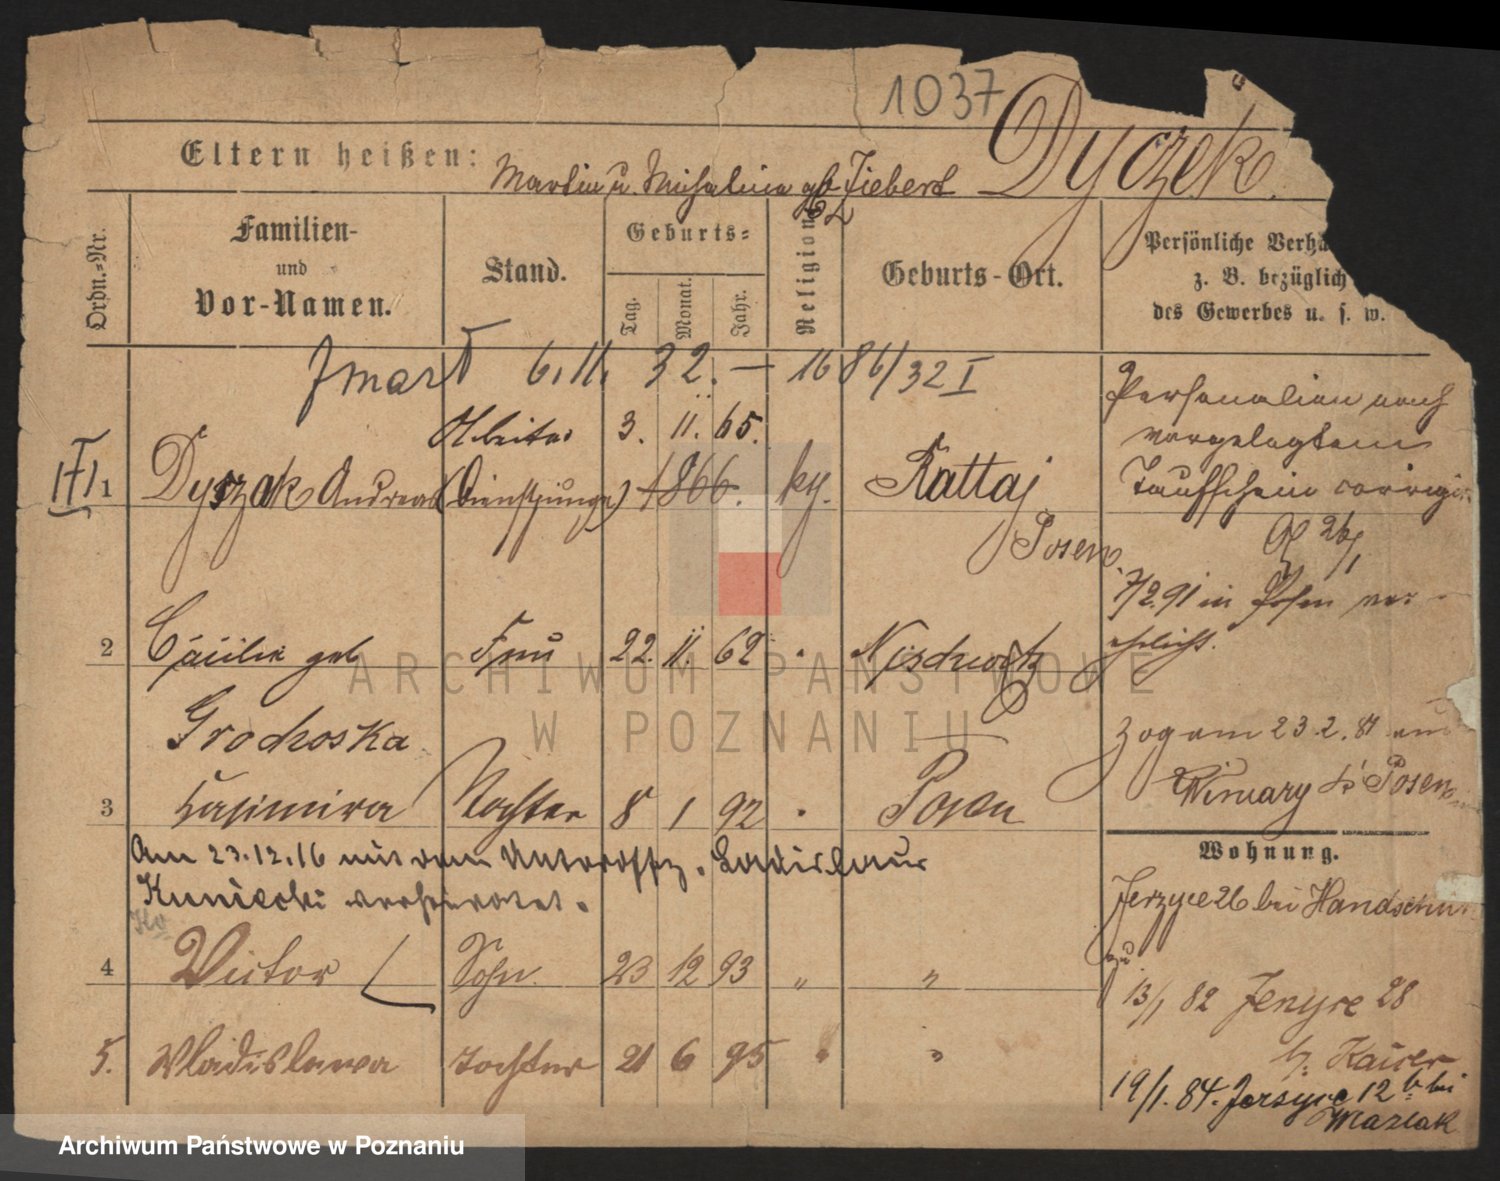 1037
Dyczek
Eltern heißen: Martin u. Michalina geb. Ziebert
Ordn.-Nr.
Familien-
und
Vor-Namen.
Stand.
Geburts-
Tag.
Monat.
Jahr.
Religion
Geburts-Ort.
Persönliche
z. B. bezüglich
des Gewerbes u. s. w.
6. 11. 32. — 1686/32 I
Arbeiter 3. 11. 65.
1 Dyczak Andreas (Dienstjunge) 1866. kg. Rattaj
Posen.
Personalien nach
vorgelegtem
Taufschein corrigi
26/1
7/2. 91 in Posen ver-
ehelicht.
2 Cäcilie geb Frau 22. 11. 62 "
Grochoska
zog am 23. 2. 81 aus
Winiary b. Posen
3 Kasimira Tochter 8 1 92 " Posen
Am 23.12.16 mit dem Unteroffz. Ladislaus
Kuniecki verheiratet.
4 Victor Sohn 23 12 93 " "
5. Wladislawa Tochter 21 6 95 " "
Wohnung.
Jerzyce 26 bei Handschu
zu
13/1 82 Jerzyce 28
b. Kaiser
19/1. 84. Jersyce 12 b. bei
Mazlak
ARCHIWUM PAŃSTWOWE
W POZNANIU
Archiwum Państwowe w Poznaniu